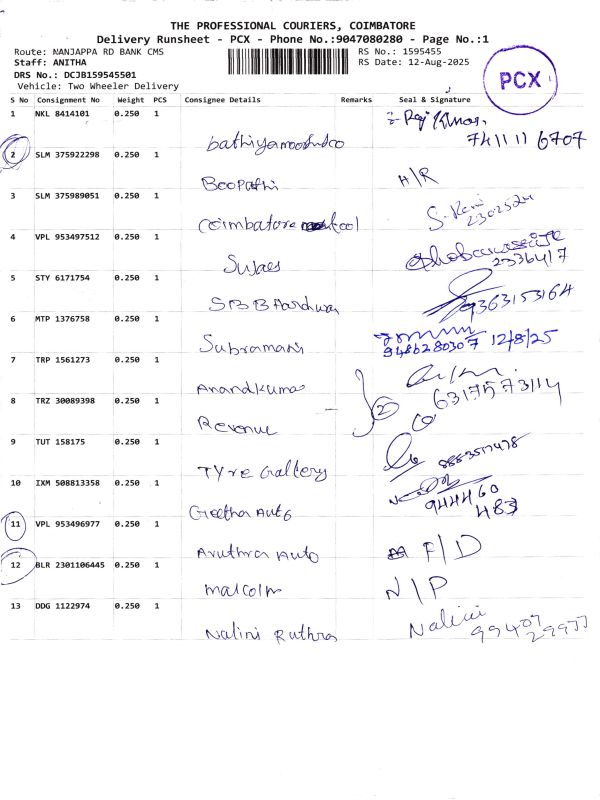 THE PROFESSIONAL COURIERS, COIMBATORE
Delivery Runsheet - PCX - Phone No.:9047080280 - Page No.:1
Route: NANJAPPA RD BANK CMS RS No.: 1595455
Staff: ANITHA RS Date: 12-Aug-2025
DRS No.: DCJB159545501
Vehicle: Two Wheeler Delivery
PCX
S No Consignment No Weight PCS Consignee Details Remarks Seal & Signature
1 NKL 8414101 0.250 1
74111 16707
2 SLM 375922298 0.250 1
Boopathi H/R
3 SLM 375989051 0.250 1
Coimbatore
2302524
4 VPL 953497512 0.250 1
2336417
5 STY 6171754 0.250 1
SBB Hardwar 9363153164
6 MTP 1376758 0.250 1
Subramani 9486280307 12/8/25
7 TRP 1561273 0.250 1
Anandkumar 6317573114
8 TRZ 30089398 0.250 1
Revenue
2
9 TUT 158175 0.250 1
Tyre Gallery
10 IXM 508813358 0.250 1
Geetha Auto 944460
483
11 VPL 953496977 0.250 1
Aruthra Auto F/D
12 BLR 2301106445 0.250 1
Malcolm N/P
13 DDG 1122974 0.250 1
Nalini Ruthra Nalini
99407
29977